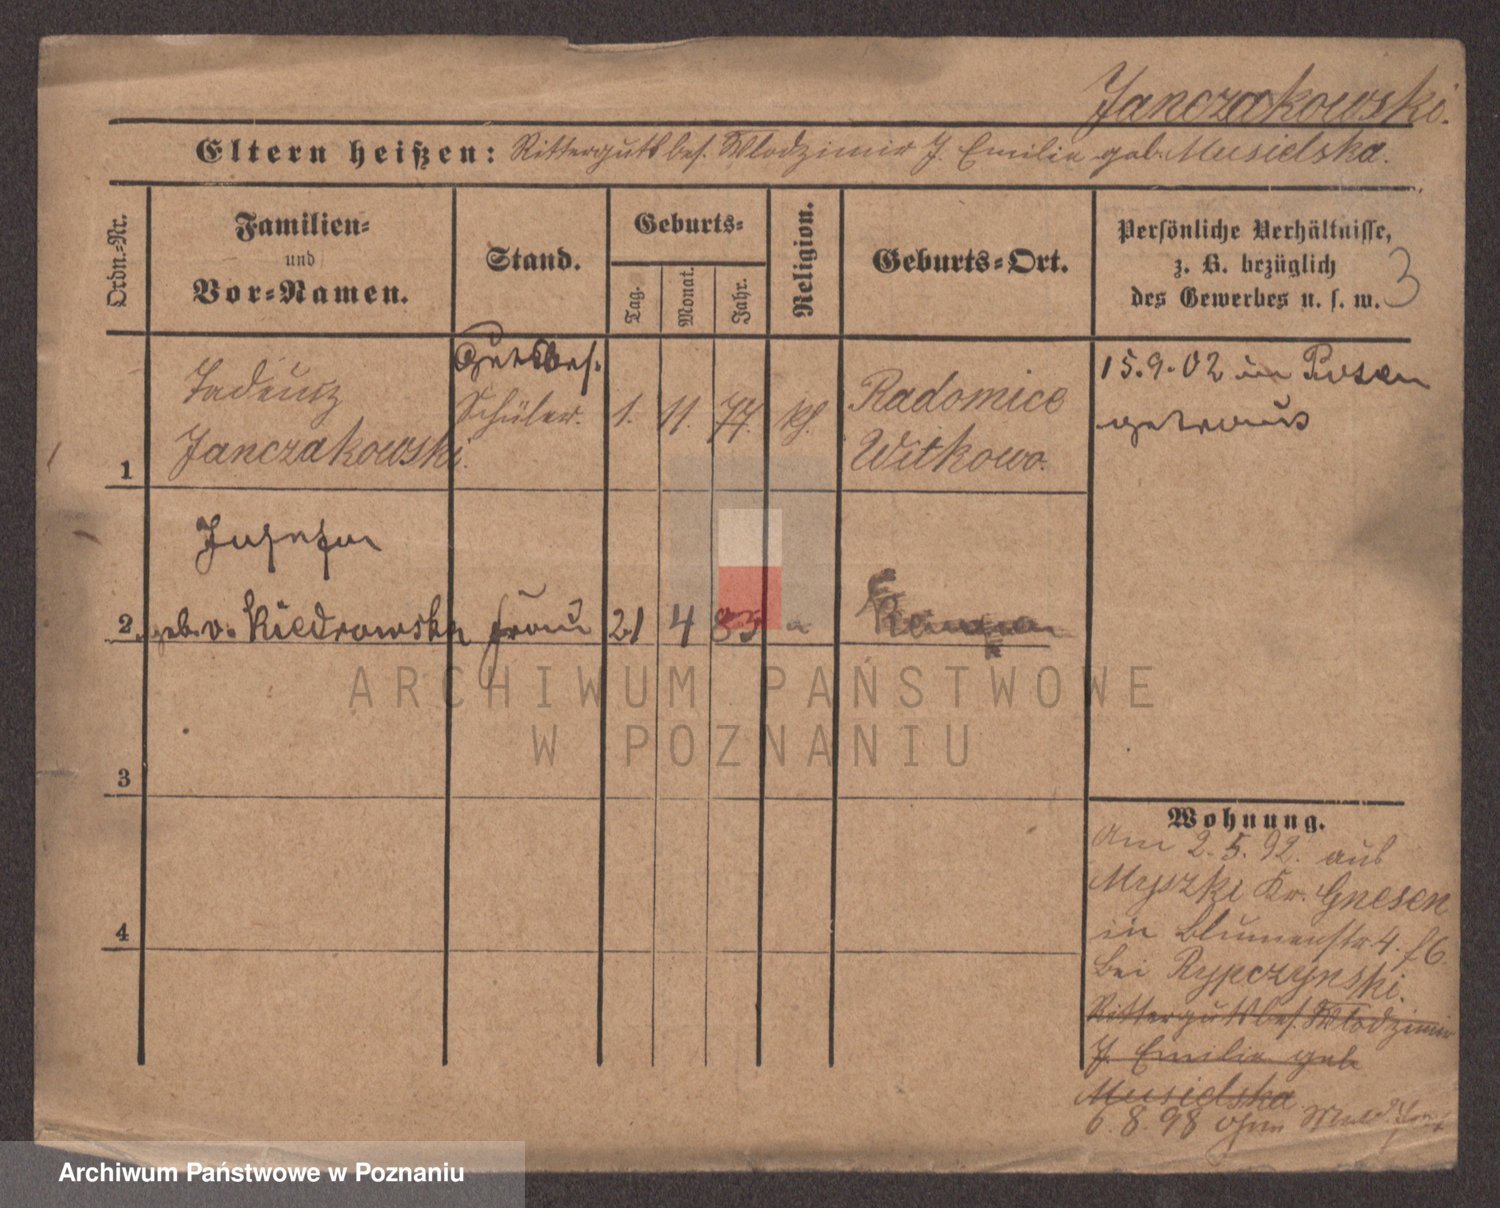 Janczakowski.
Eltern heißen: Ritterguts bes. Wlodzimir J. Emilie geb. Musielska.
Ordn.-Nr.
Familien- und Vor-Namen.
Stand.
Geburts-
Tag.
Monat.
Jahr.
Religion.
Geburts-Ort.
Persönliche Verhältnisse,
z. B. bezüglich
des Gewerbes u. s. w.
3
Gutsbes.
1 Tadeusz Janczakowski. Schüler. 1. 11. 77. kf. Radomice Witkowo.
15.9.02 in Posen
getraut
Josefa
2 geb. v. Kiedrowska Frau 21 4 83
3
4
Wohnung.
Am 2.5.92. aus
Myszki Kr. Gnesen
in Blumenstr. 4.
bei Rypczynski.
Ritterguts bes. Wlodzimir
J. Emilie geb
Musielska
6.8.98 ohne
ARCHIWUM PAŃSTWOWE
W POZNANIU
Archiwum Państwowe w Poznaniu